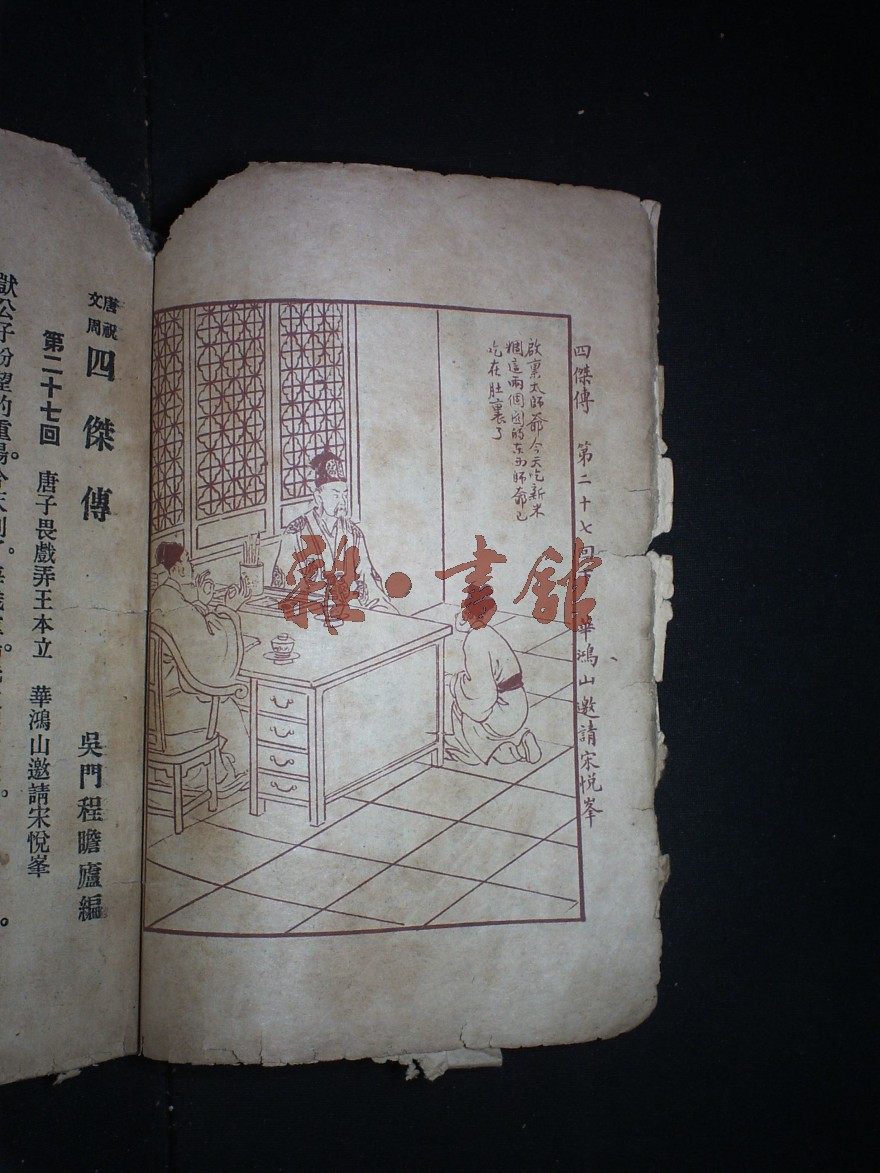 四傑傳　第二十七回　華鴻山邀請宋悅峯
啟稟太師爺今天吃新米
糰這兩個圓的東西師爺已
吃在肚裏了
雜·書舘
唐祝
文周
四傑傳
吳門程瞻廬編
第二十七回　唐子畏戲弄王本立　華鴻山邀請宋悅峯